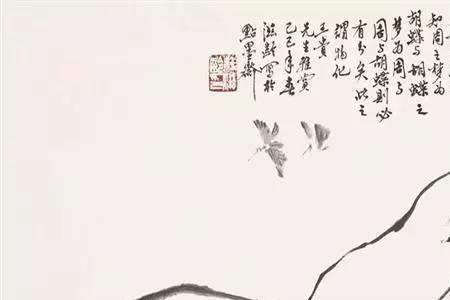 知周之梦为
胡蝶与胡蝶之
梦为周与
周与胡蝶则必
有分矣此之
谓物化
先生雅赏
己巳年春
写於
點墨